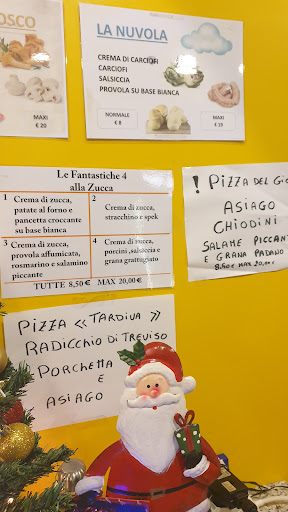 OSCO
MAXI
€ 20
LA NUVOLA
CREMA DI CARCIOFI
CARCIOFI
SALSICCIA
PROVOLA SU BASE BIANCA
NORMALE
€ 8
MAXI
€ 19
Le Fantastiche 4
alla Zucca
1 Crema di zucca,
patate al forno e
pancetta croccante
su base bianca
2 Crema di zucca,
stracchino e spek
3 Crema di zucca,
provola affumicata,
rosmarino e salamino
piccante
4 Crema di zucca,
porcini, salsiccia e
grana grattugiato
TUTTE 8,50 € MAX 20,00 €
! PIZZA DEL Gio
ASIAGO
CHIODINI
SALAME PICCANT
E GRANA PADANO
8,50 € MAX 20,00 €
PIZZA << TARDIVA >>
RADICCHIO DI TREVISO
PORCHETTA
E
ASIAGO